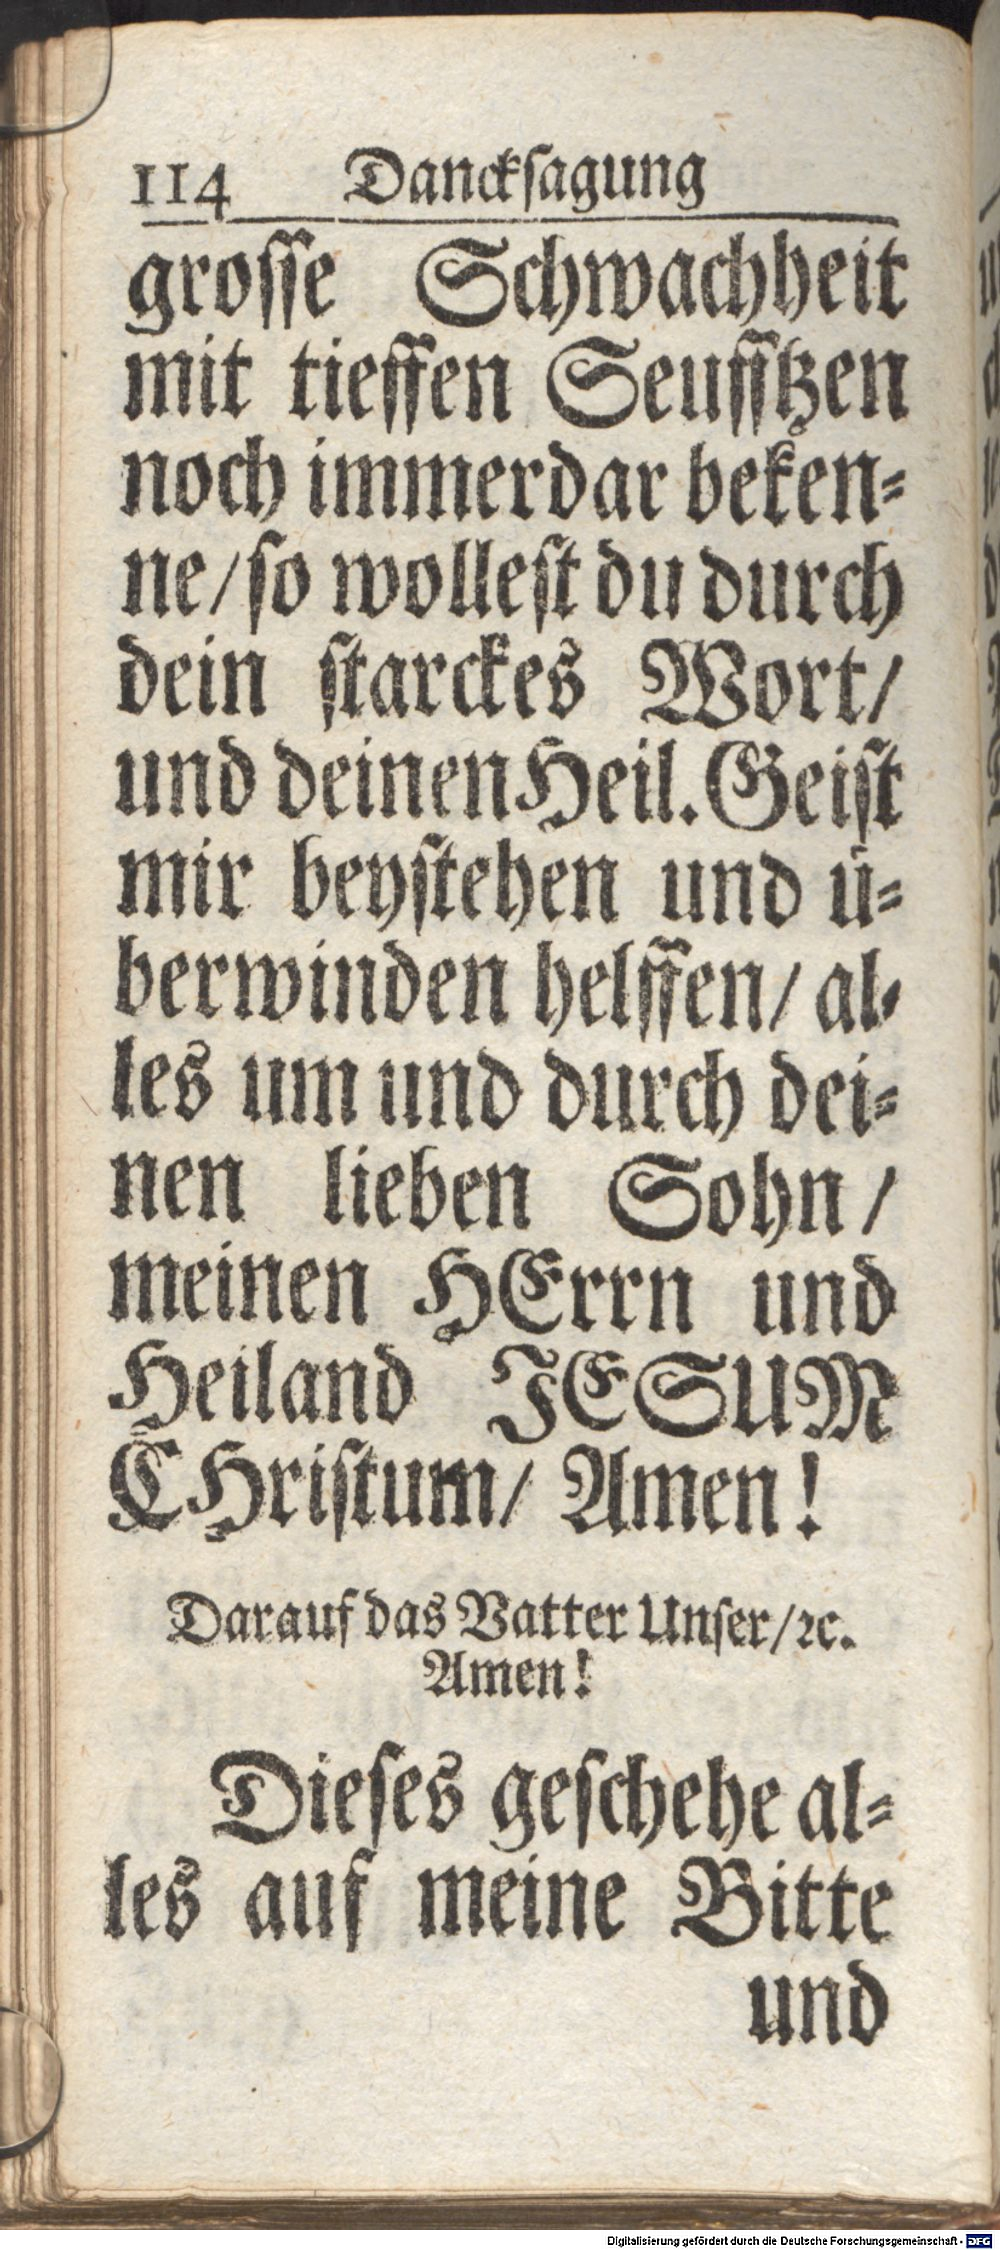 114 Danckſagung
groſſe Schwachheit
mit tieffen Seufſtzen
noch immerdar beken⸗
ne/ſo wolleſt du durch
dein ſtarckes Wort/
und deinen Heil. Geiſt
mir beyſtehen und ü⸗
berwinden helffen/ al⸗
les um und durch dei⸗
nen lieben Sohn/
meinen HErrn und
Heiland JESUM
CHriſtum/ Amen!
Darauf das Vatter Unſer/ꝛc.
Amen!
Dieſes geſchehe al⸗
les auf meine Bitte
und
Digitalisierung gefördert durch die Deutsche Forschungsgemeinschaft - DFG